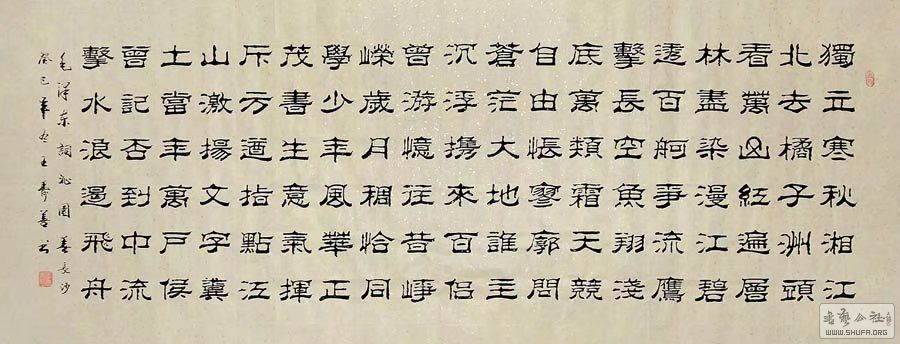 獨立寒秋湘江
北去橘子洲頭
看萬山紅遍層
林盡染漫江碧
透百舸爭流鷹
擊長空魚翔淺
底萬類霜天競
自由悵寥廓問
蒼茫大地誰主
沉浮攜來百侶
曾游憶往昔崢
嶸歲月稠恰同
學少年風華正
茂書生意氣揮
斥方遒指點江
山激揚文字糞
土當年萬戶侯
曾記否到中流
擊水浪遏飛舟
毛澤東詞沁園春長沙
癸巳年冬王壽善書
書藝公社
WWW.SHUFA.ORG